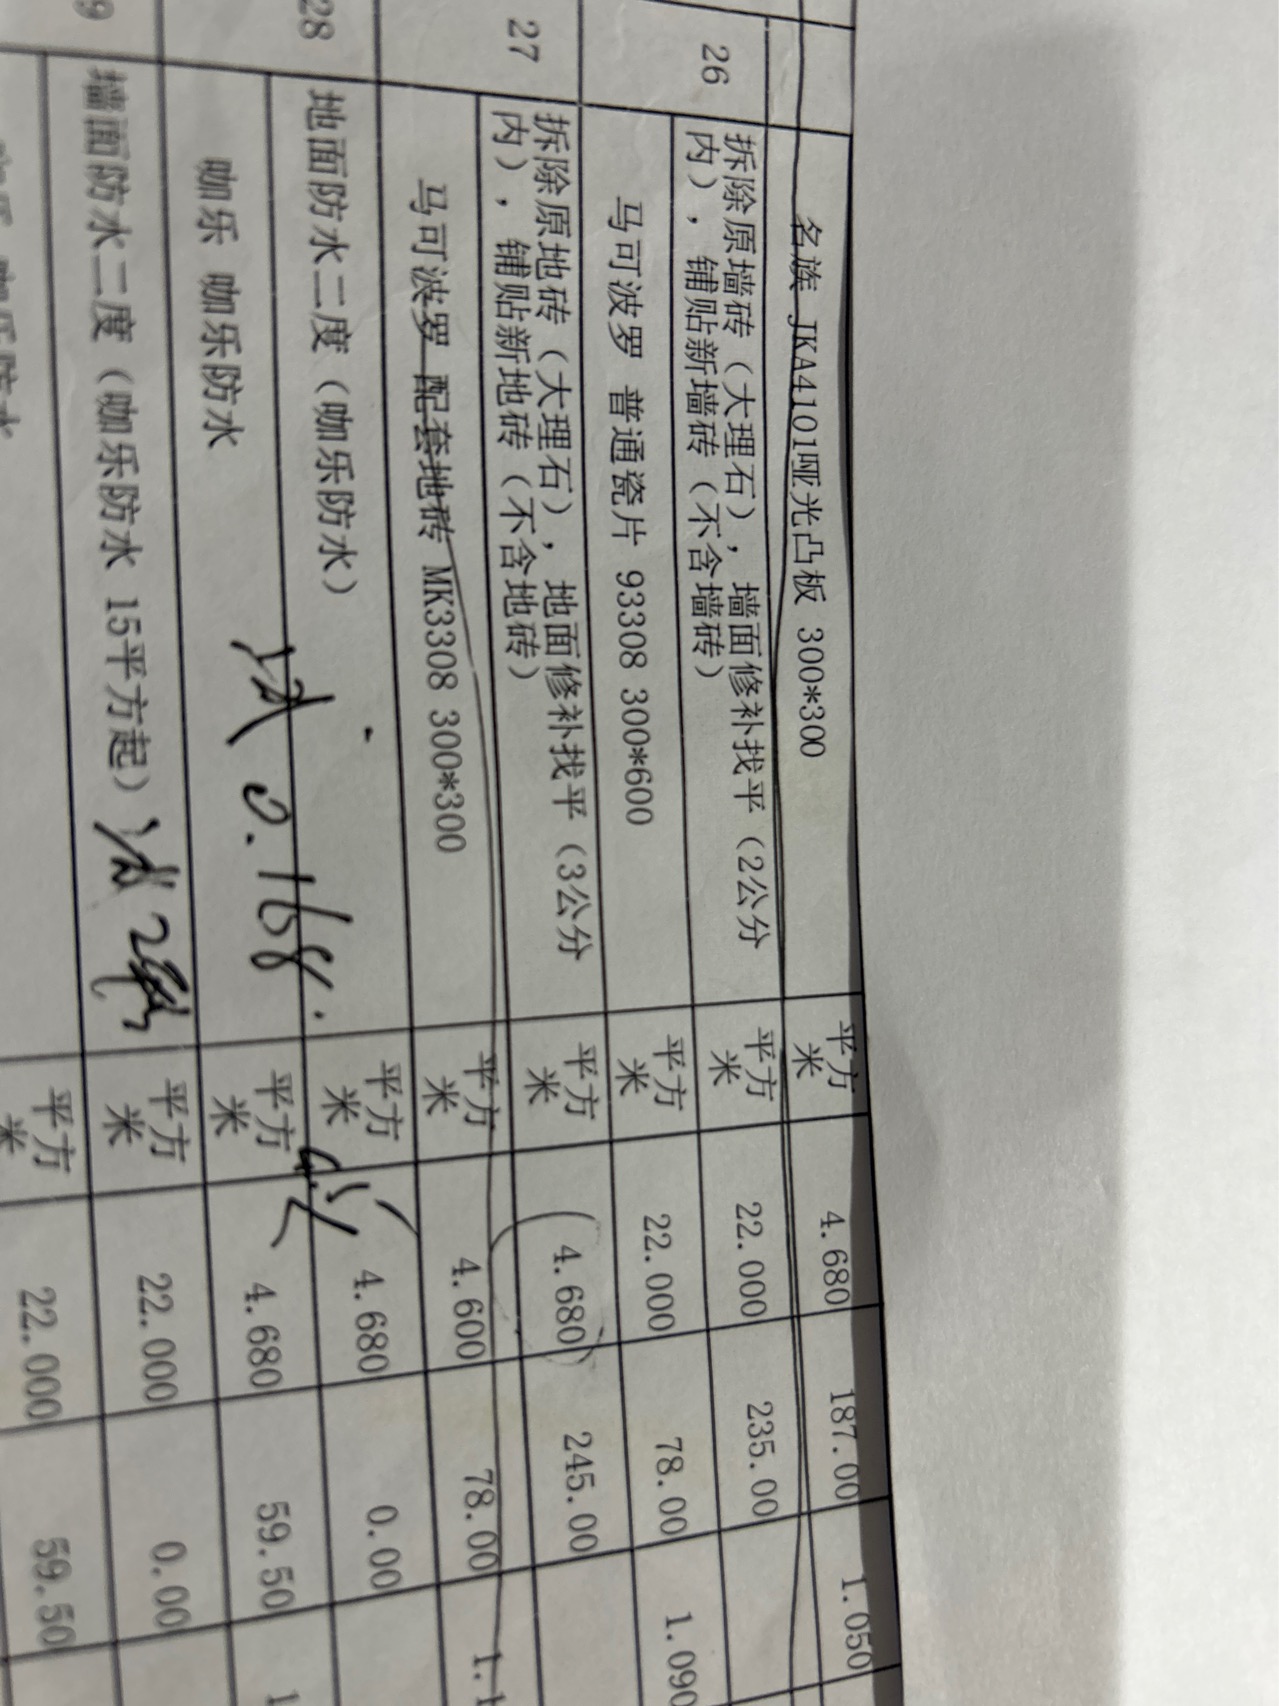 名族 JKA4101哑光凸板 300*300 平方米 4.680 187.00 1.050
26 拆除原墙砖（大理石），墙面修补找平（2公分内），铺贴新墙砖（不含墙砖） 平方米 22.000 235.00
马可波罗 普通瓷片 93308 300*600 平方米 22.000 78.00 1.090
27 拆除原地砖（大理石），地面修补找平（3公分内），铺贴新地砖（不含地砖） 平方米 4.680 245.00
马可波罗 配套地砖 MK3308 300*300 平方米 4.600 78.00 1.1
28 地面防水二度（咖乐防水） 平方米 4.680 0.00
咖乐 咖乐防水 减 0.168. 平方米 4.680 59.50 1
9 墙面防水二度（咖乐防水 15平方起） 减 平方米 22.000 0.00
平方米 22.000 59.50